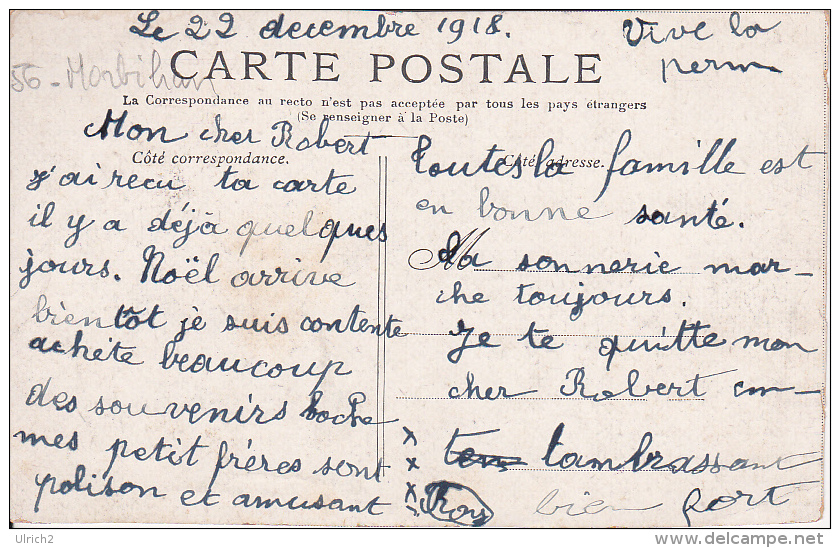 Le 22 decembre 1918.
Vive la
perm
56 - Morbihan
CARTE POSTALE
La Correspondance au recto n'est pas acceptée par tous les pays étrangers
(Se renseigner à la Poste)
Côté correspondance.
Mon cher Robert
j'ai recu ta carte
il y a déjà quelques
jours. Noël arrive
bientôt je suis contente
achéte beaucoup
des souvenirs boche
mes petit fréres sont
polison et amusant
Côté adresse.
toutes la famille est
en bonne santé.
Ma sonnerie mar-
che toujours.
Je te quitte mon
cher Robert en-
tambrassant
bien fort
delcampe.net
Ulrich2